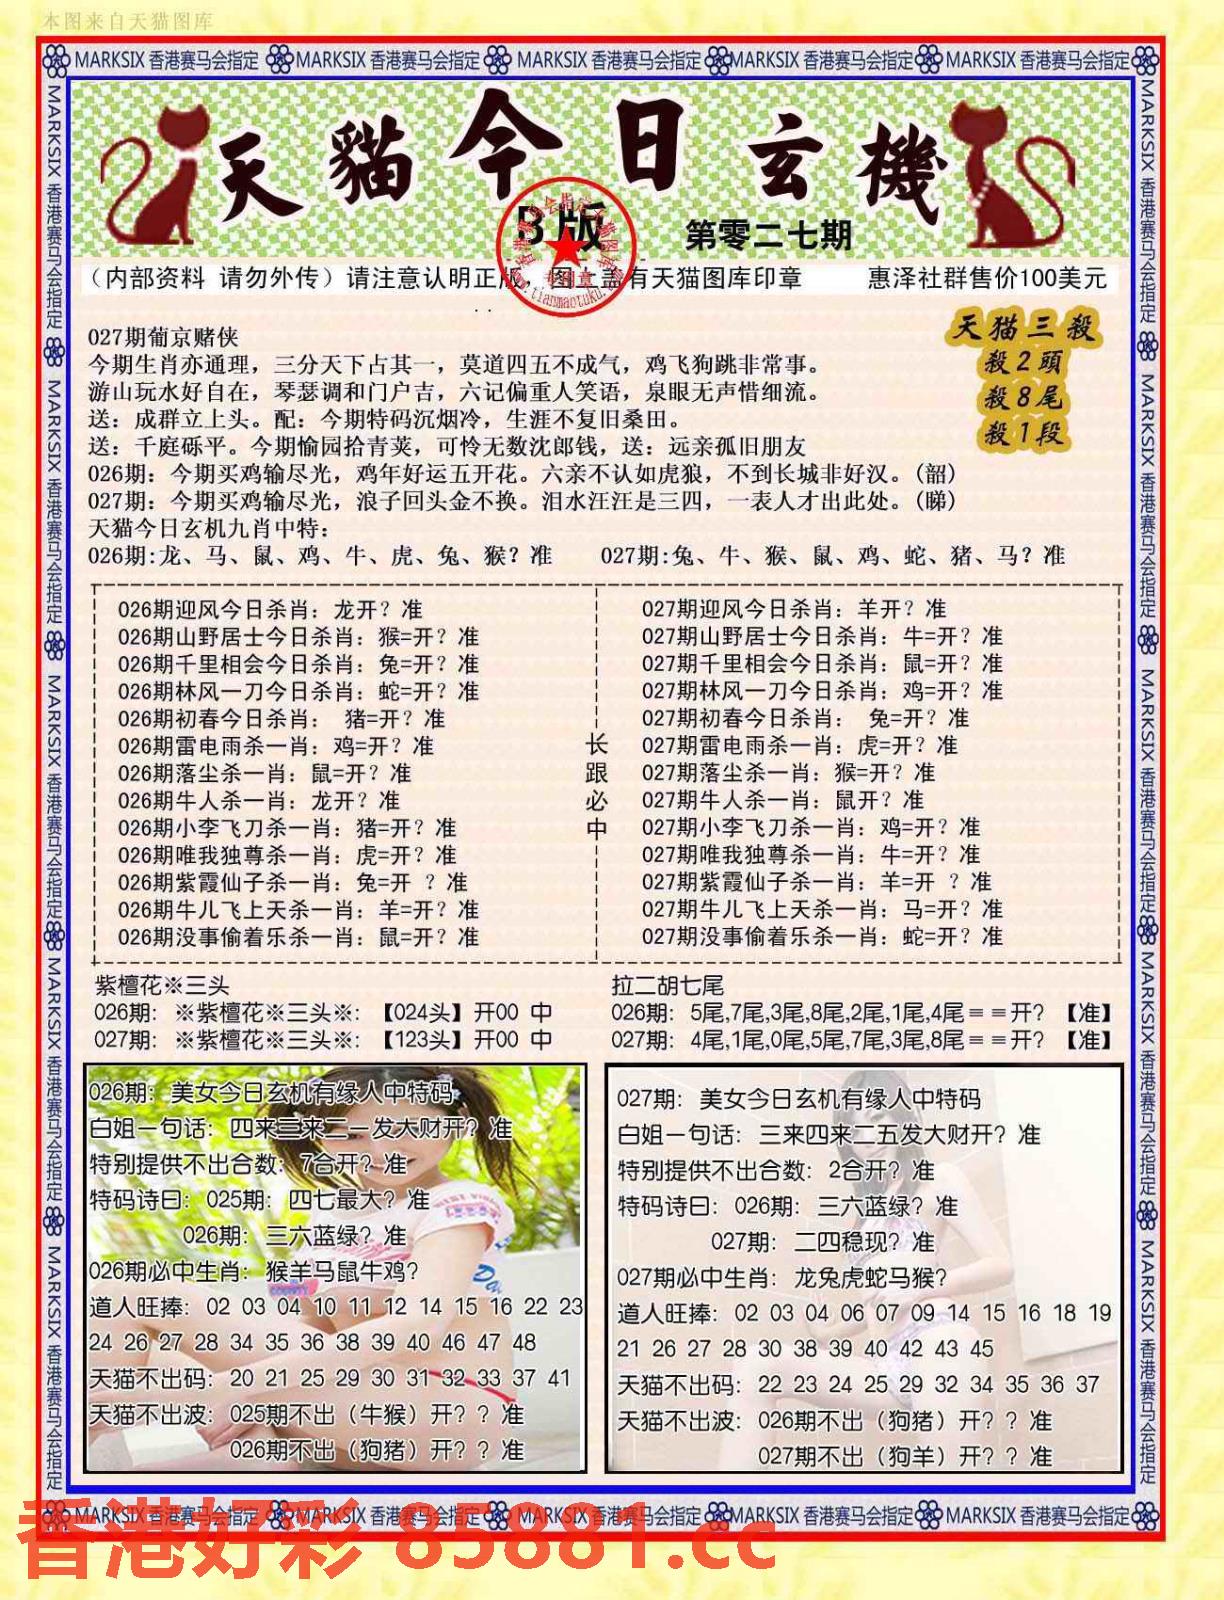 本图来自天猫图库
MARKSIX 香港赛马会指定 MARKSIX 香港赛马会指定 MARKSIX 香港赛马会指定 MARKSIX 香港赛马会指定 MARKSIX 香港赛马会指定
天貓今日玄機
B版
第零二七期
（内部资料 请勿外传）请注意认明正版 图上盖有天猫图库印章 惠泽社群售价100美元
027期葡京赌侠
今期生肖亦通理，三分天下占其一，莫道四五不成气，鸡飞狗跳非常事。
游山玩水好自在，琴瑟调和门户吉，六记偏重人笑语，泉眼无声惜细流。
送：成群立上头。配：今期特码沉烟冷，生涯不复旧桑田。
送：千庭砾平。今期愉园拾青荚，可怜无数沈郎钱，送：远亲孤旧朋友
026期：今期买鸡输尽光，鸡年好运五开花。六亲不认如虎狼，不到长城非好汉。（韶）
027期：今期买鸡输尽光，浪子回头金不换。泪水汪汪是三四，一表人才出此处。（睇）
天猫三殺
殺2頭
殺8尾
殺1段
天猫今日玄机九肖中特：
026期:龙、马、鼠、鸡、牛、虎、兔、猴？准 027期:兔、牛、猴、鼠、鸡、蛇、猪、马？准
026期迎风今日杀肖：龙开？准
026期山野居士今日杀肖：猴=开？准
026期千里相会今日杀肖：兔=开？准
026期林风一刀今日杀肖：蛇=开？准
026期初春今日杀肖： 猪=开？准
026期雷电雨杀一肖：鸡=开？准
026期落尘杀一肖：鼠=开？准
026期牛人杀一肖：龙开？准
026期小李飞刀杀一肖：猪=开？准
026期唯我独尊杀一肖：虎=开？准
026期紫霞仙子杀一肖：兔=开 ？准
026期牛儿飞上天杀一肖：羊=开？准
026期没事偷着乐杀一肖：鼠=开？准
长跟必中
027期迎风今日杀肖：羊开？准
027期山野居士今日杀肖：牛=开？准
027期千里相会今日杀肖：鼠=开？准
027期林风一刀今日杀肖：鸡=开？准
027期初春今日杀肖： 兔=开？准
027期雷电雨杀一肖：虎=开？准
027期落尘杀一肖：猴=开？准
027期牛人杀一肖：鼠开？准
027期小李飞刀杀一肖：鸡=开？准
027期唯我独尊杀一肖：牛=开？准
027期紫霞仙子杀一肖：羊=开 ？准
027期牛儿飞上天杀一肖：马=开？准
027期没事偷着乐杀一肖：蛇=开？准
紫檀花※三头
026期：※紫檀花※三头※：【024头】开00 中
027期：※紫檀花※三头※：【123头】开00 中
拉二胡七尾
026期：5尾,7尾,3尾,8尾,2尾,1尾,4尾＝＝开？【准】
027期：4尾,1尾,0尾,5尾,7尾,3尾,8尾＝＝开？【准】
026期：美女今日玄机有缘人中特码
白姐一句话：四来三来二一发大财开？准
特别提供不出合数：7合开？准
特码诗曰：025期：四七最大？准
026期：三六蓝绿？准
026期必中生肖：猴羊马鼠牛鸡？
道人旺捧：02 03 04 10 11 12 14 15 16 22 23
24 26 27 28 34 35 36 38 39 40 46 47 48
天猫不出码：20 21 25 29 30 31 32 33 37 41
天猫不出波：025期不出（牛猴）开？？准
026期不出（狗猪）开？？准
027期：美女今日玄机有缘人中特码
白姐一句话：三来四来二五发大财开？准
特别提供不出合数：2合开？准
特码诗曰：026期：三六蓝绿？准
027期：二四稳现？准
027期必中生肖：龙兔虎蛇马猴？
道人旺捧：02 03 04 06 07 09 14 15 16 18 19
21 26 27 28 30 38 39 40 42 43 45
天猫不出码：22 23 24 25 29 32 34 35 36 37
天猫不出波：026期不出（狗猪）开？？准
027期不出（狗羊）开？？准
MARKSIX 香港赛马会指定 MARKSIX 香港赛马会指定 MARKSIX 香港赛马会指定 MARKSIX 香港赛马会指定 MARKSIX 香港赛马会指定
香港好彩 85881.cc